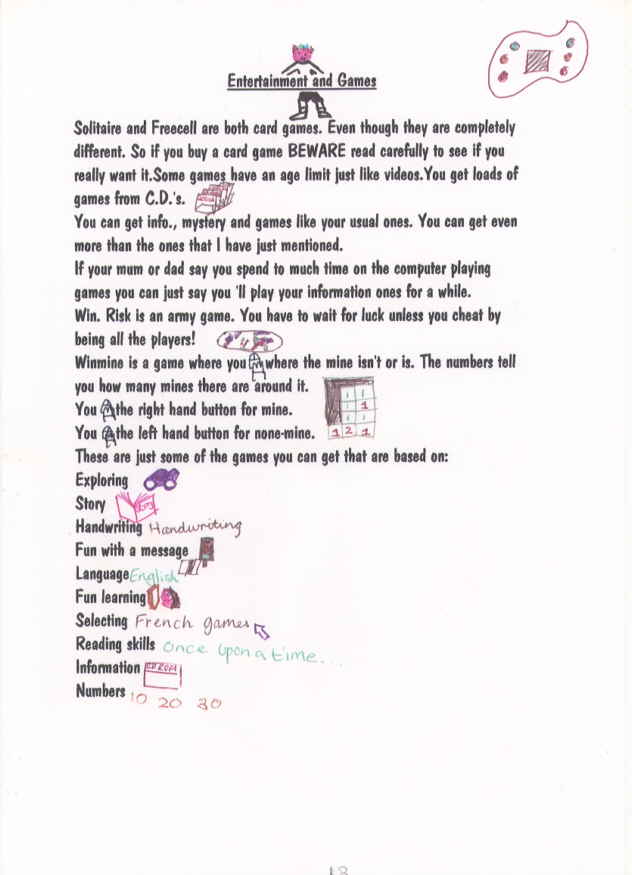 Entertainment and Games
Solitaire and Freecell are both card games. Even though they are completely
different. So if you buy a card game BEWARE read carefully to see if you
really want it.Some games have an age limit just like videos.You get loads of
games from C.D.'s.
You can get info., mystery and games like your usual ones. You can get even
more than the ones that I have just mentioned.
If your mum or dad say you spend to much time on the computer playing
games you can just say you 'll play your information ones for a while.
Win. Risk is an army game. You have to wait for luck unless you cheat by
being all the players!
Winmine is a game where you where the mine isn't or is. The numbers tell
you how many mines there are around it.
1 1
1
You the right hand button for mine.
You the left hand button for none-mine. 1 2 1
These are just some of the games you can get that are based on:
Exploring
Story
Handwriting Handwriting
Fun with a message
Language English
Fun learning
Selecting French games
Reading skills Once upon a time...
Information CD ROM
Numbers 10 20 30
13